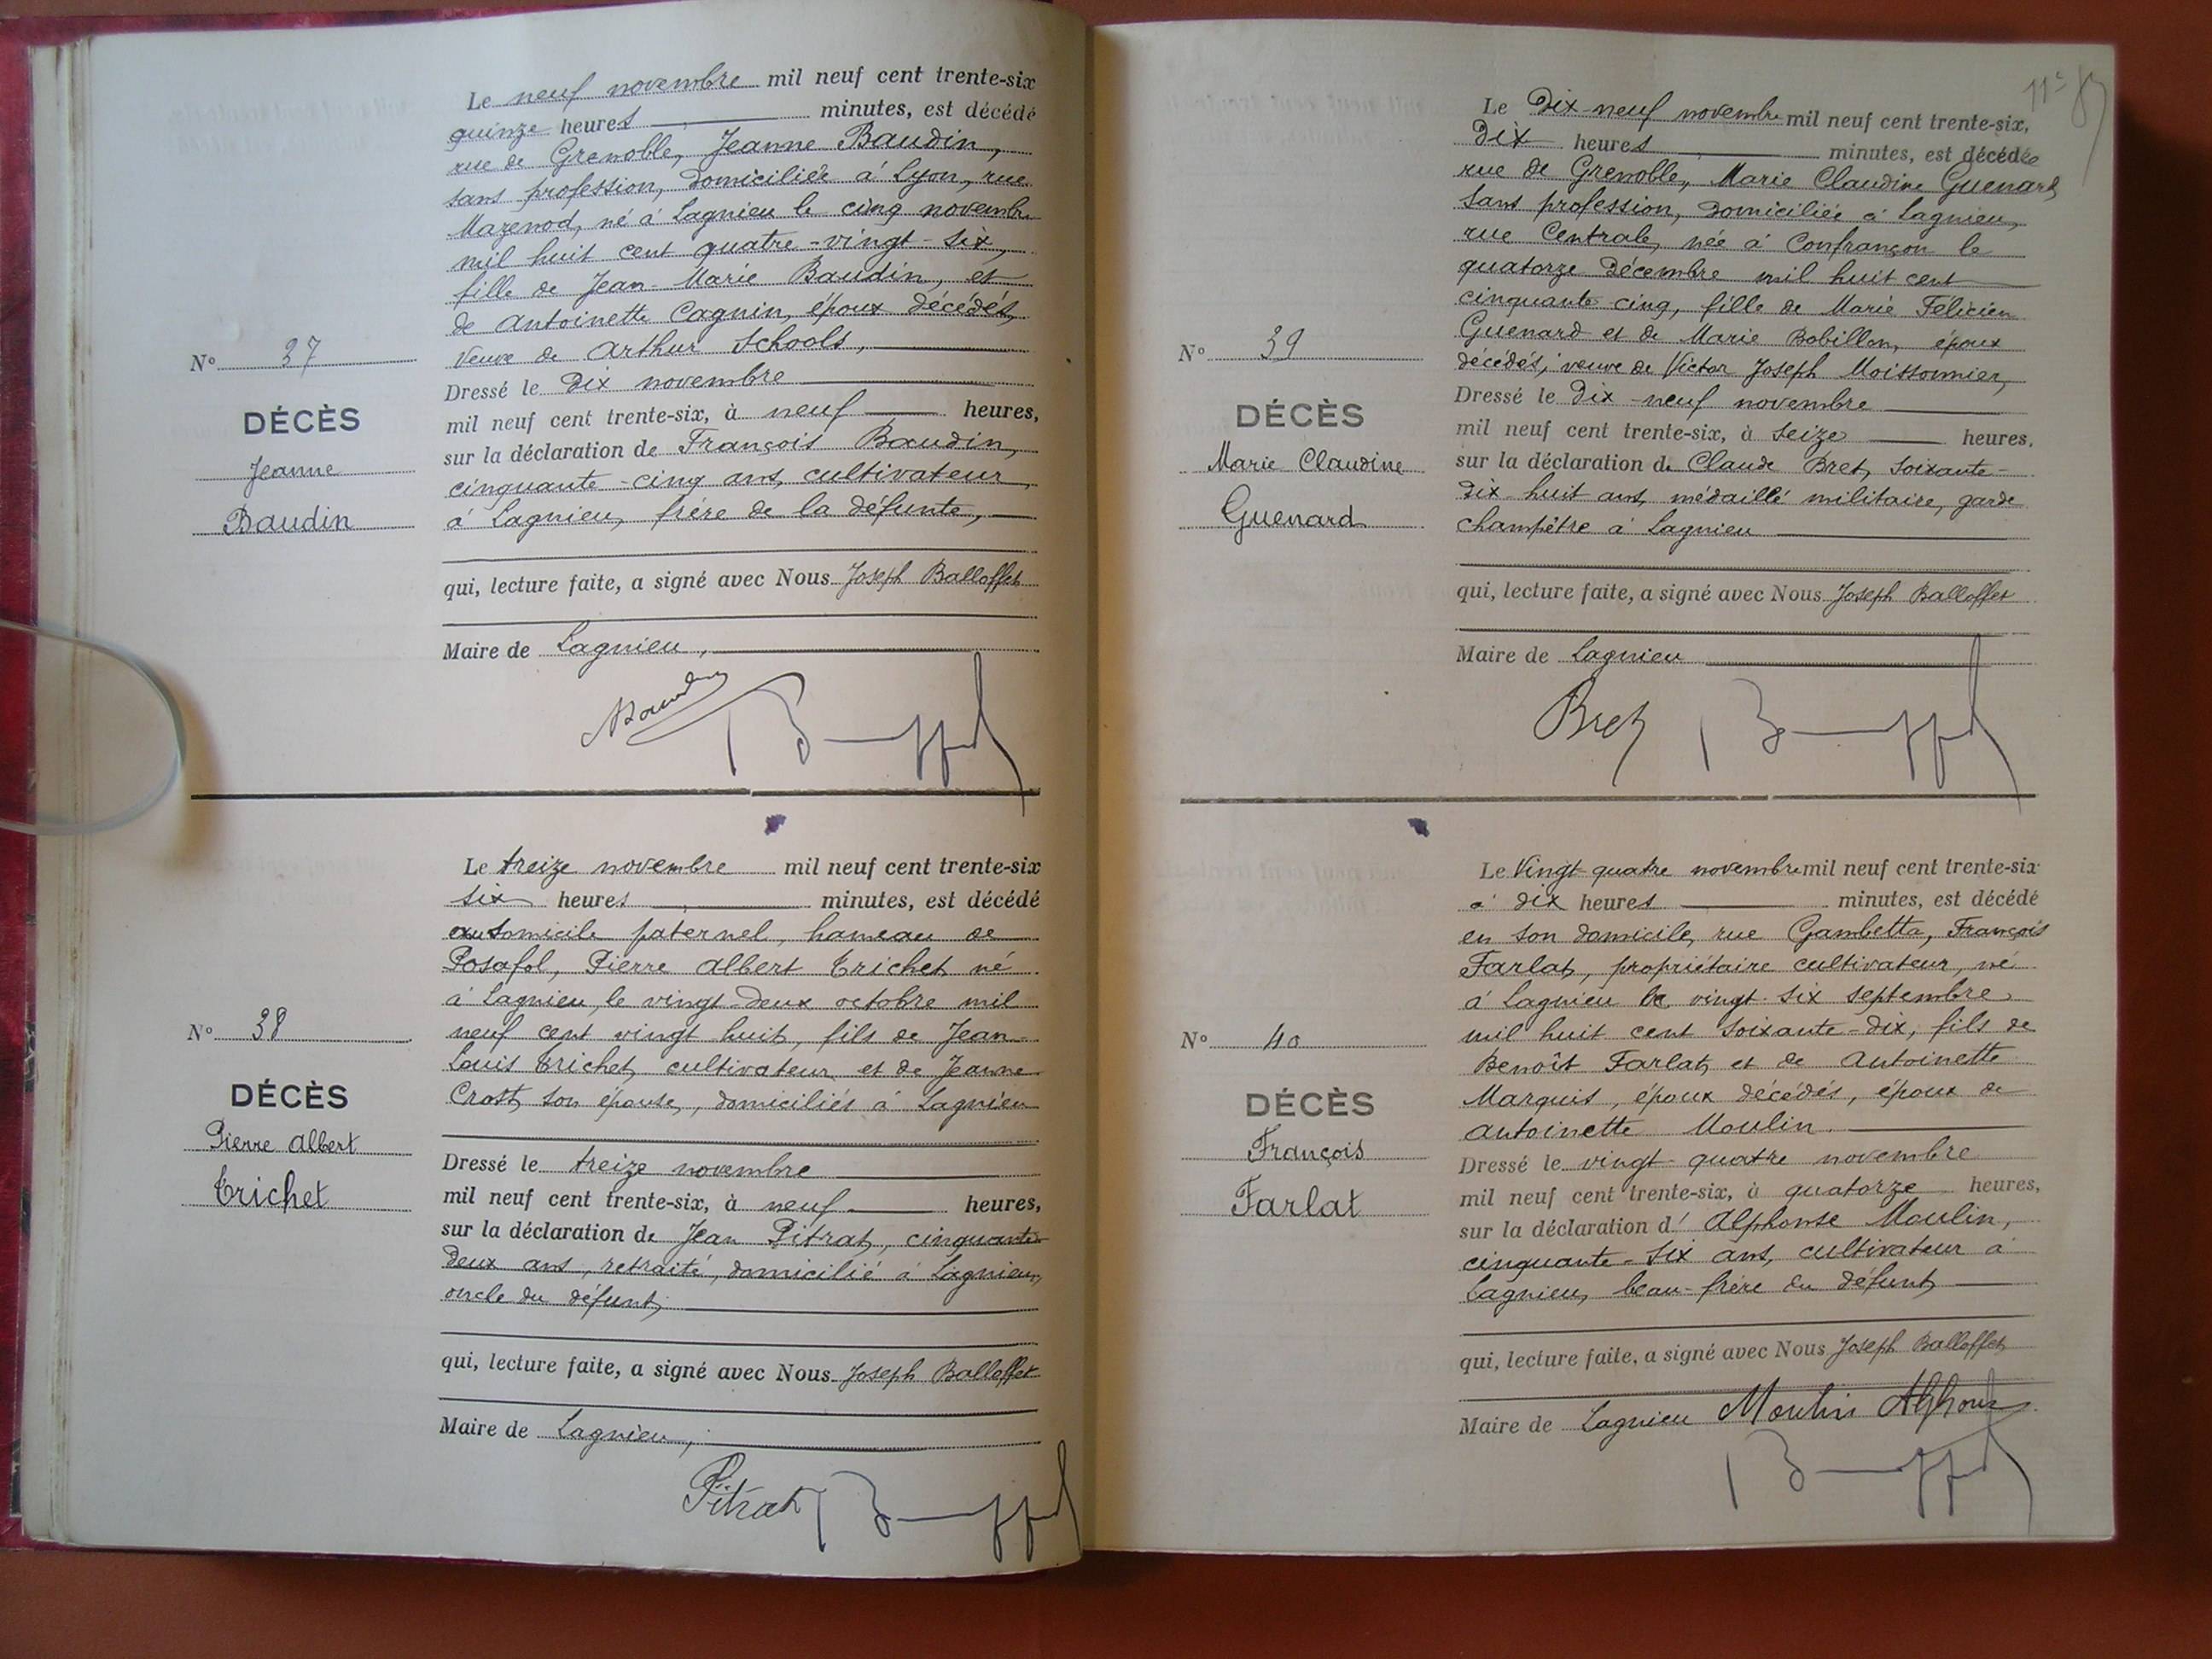 Le neuf novembre mil neuf cent trente-six
quinze heures minutes, est décédé
rue de Grenoble, Jeanne Baudin,
sans profession, domiciliée à Lyon, rue
Mazenod, né à Lagnieu le cinq novembre
mil huit cent quatre-vingt-six,
fille de Jean-Marie Baudin, et
de Antoinette Cagnin, époux décédés,
veuve de Arthur Schools,
Dressé le dix novembre
mil neuf cent trente-six, à neuf heures,
sur la déclaration de François Baudin,
cinquante-cinq ans, cultivateur
à Lagnieu, frère de la défunte,
qui, lecture faite, a signé avec Nous Joseph Balloffet
Maire de Lagnieu,
Nº 37
DÉCÈS
Jeanne
Baudin
Baudin
Le treize novembre mil neuf cent trente-six
six heures minutes, est décédé
au domicile paternel, hameau de
Posafol, Pierre Albert Trichet né
à Lagnieu, le vingt-deux octobre mil
neuf cent vingt huit, fils de Jean-
Louis Trichet, cultivateur et de Jeanne
Crost, son épouse, domiciliés à Lagnieu
Dressé le treize novembre
mil neuf cent trente-six, à neuf heures,
sur la déclaration de Jean Pitrat, cinquante
deux ans, retraité, domicilié à Lagnieu,
oncle du défunt,
qui, lecture faite, a signé avec Nous Joseph Balloffet
Maire de Lagnieu,
Nº 38
DÉCÈS
Pierre Albert
Trichet
Pitrat
Le Dix-neuf novembre mil neuf cent trente-six,
Dix heures minutes, est décédée
rue de Grenoble, Marie Claudine Guenard,
sans profession, domiciliée à Lagnieu,
rue Centrale, née à Confrançon le
quatorze Décembre mil huit cent
cinquante-cinq, fille de Marie Félicien
Guenard et de Marie Bobillon, époux
décédés, veuve de Victor Joseph Moissonnier,
Dressé le Dix-neuf novembre
mil neuf cent trente-six, à seize heures,
sur la déclaration de Claude Bret, soixante-
dix-huit ans, médaillé militaire, garde
champêtre à Lagnieu
qui, lecture faite, a signé avec Nous Joseph Balloffet
Maire de Lagnieu
Nº 39
DÉCÈS
Marie Claudine
Guenard
Bret
Le Vingt-quatre novembre mil neuf cent trente-six
à dix heures minutes, est décédé
en son domicile, rue Gambetta, François
Farlat, propriétaire cultivateur, né
à Lagnieu le vingt-six septembre
mil huit cent soixante-dix, fils de
Benoît Farlat, et de Antoinette
Marquis, époux décédés, époux de
Antoinette Moulin.
Dressé le vingt-quatre novembre
mil neuf cent trente-six, à quatorze heures,
sur la déclaration d'Alphonse Moulin,
cinquante-six ans, cultivateur à
Lagnieu, beau-frère du défunt
qui, lecture faite, a signé avec Nous Joseph Balloffet
Maire de Lagnieu Moulin Alphonse
Nº 40
DÉCÈS
François
Farlat